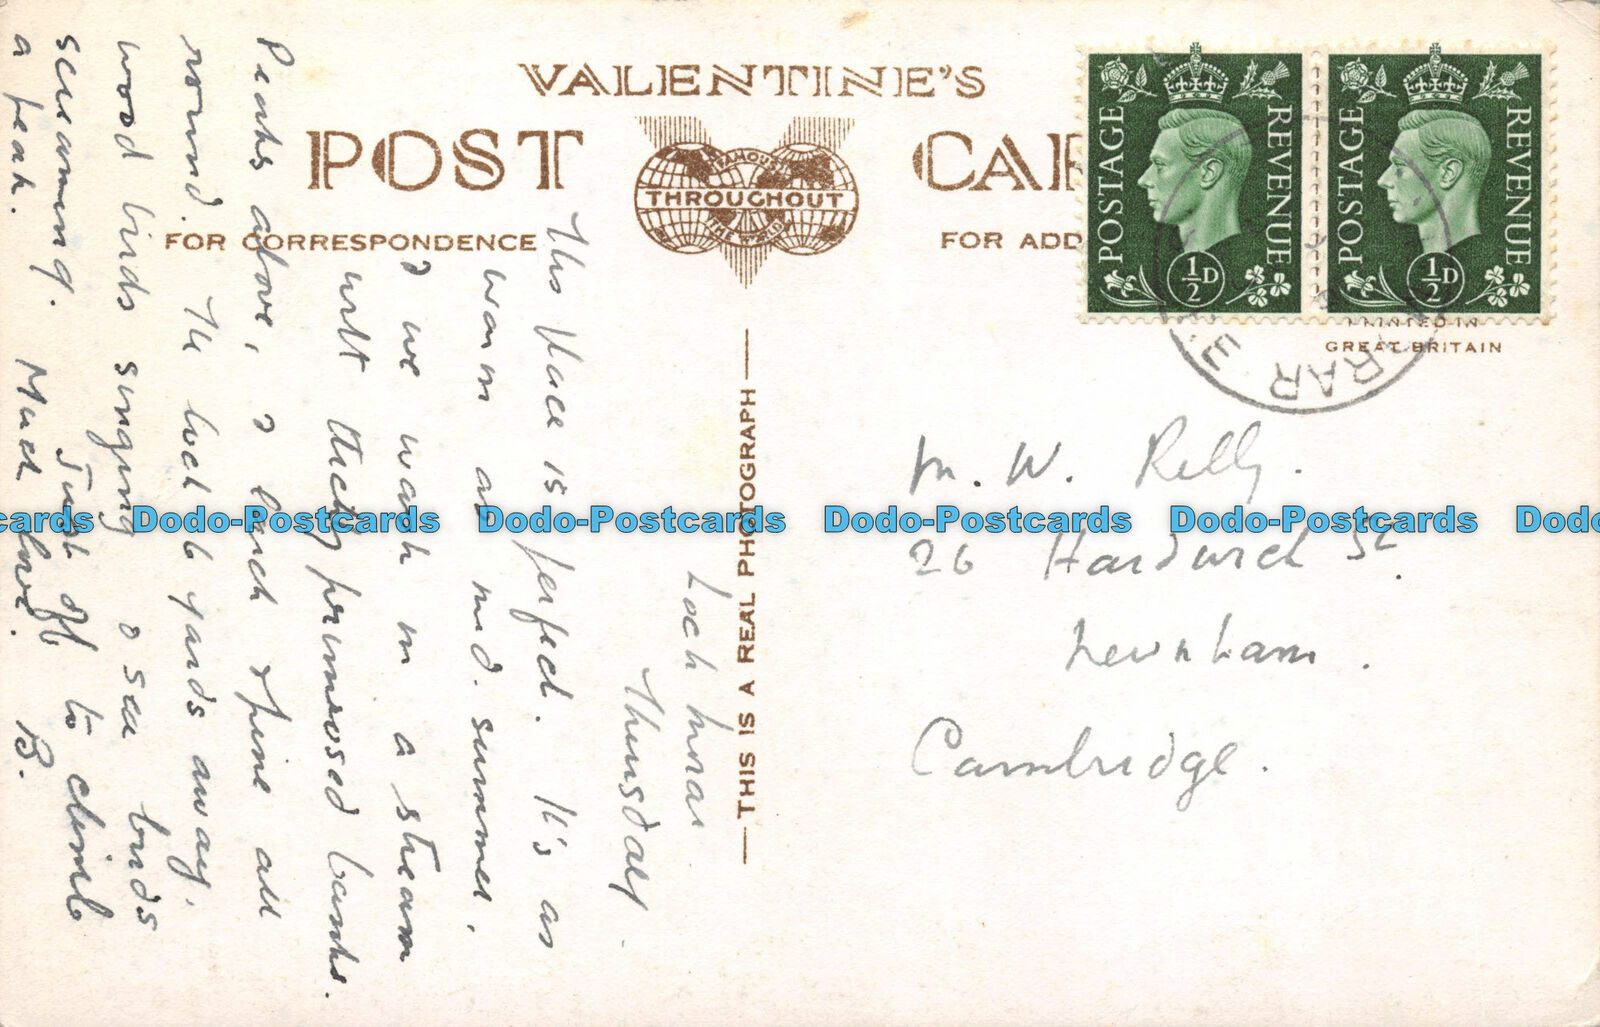 VALENTINE'S
POST CAR
FAMOUS
THROUGHOUT
THE WORLD
FOR CORRESPONDENCE
FOR ADD
POSTAGE REVENUE
½D
POSTAGE REVENUE
½D
PRINTED IN
GREAT BRITAIN
RAR E
THIS IS A REAL PHOTOGRAPH
Loch
Thursday.
This place is perfect. It's as
warm as mid. summer,
& we wash in a stream
with thickly primrosed banks.
Peaks above, & birch & pine all
round. The loch 6 yards away,
wood birds singing & sea birds
screaming. Just off to climb
a peak. Much love. B.
M. W. Reilly.
26 Hardwick St.
Newnham.
Cambridge.
cards Dodo-Postcards Dodo-Postcards Dodo-Postcards Dodo-Postcards Dodo